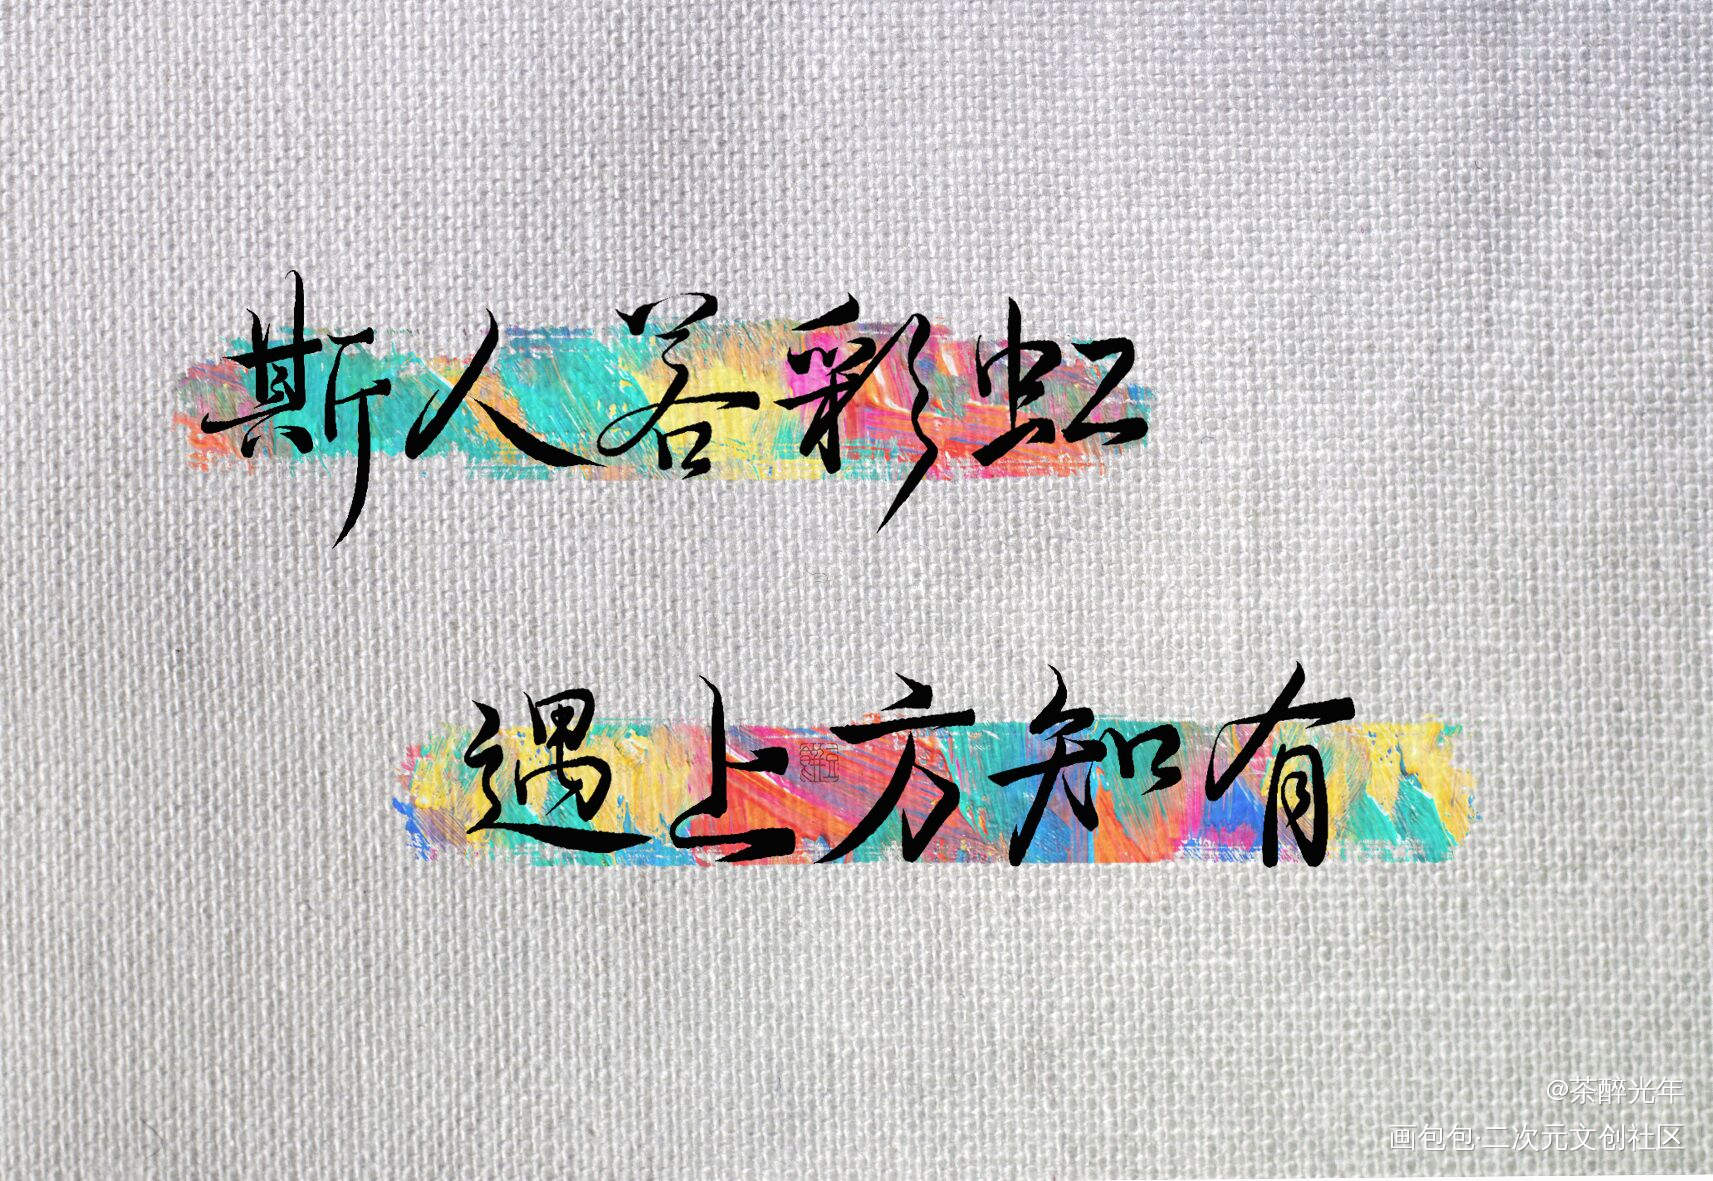 斯人若彩虹
遇上方知有
@茶醉光年
画包包·二次元文创社区